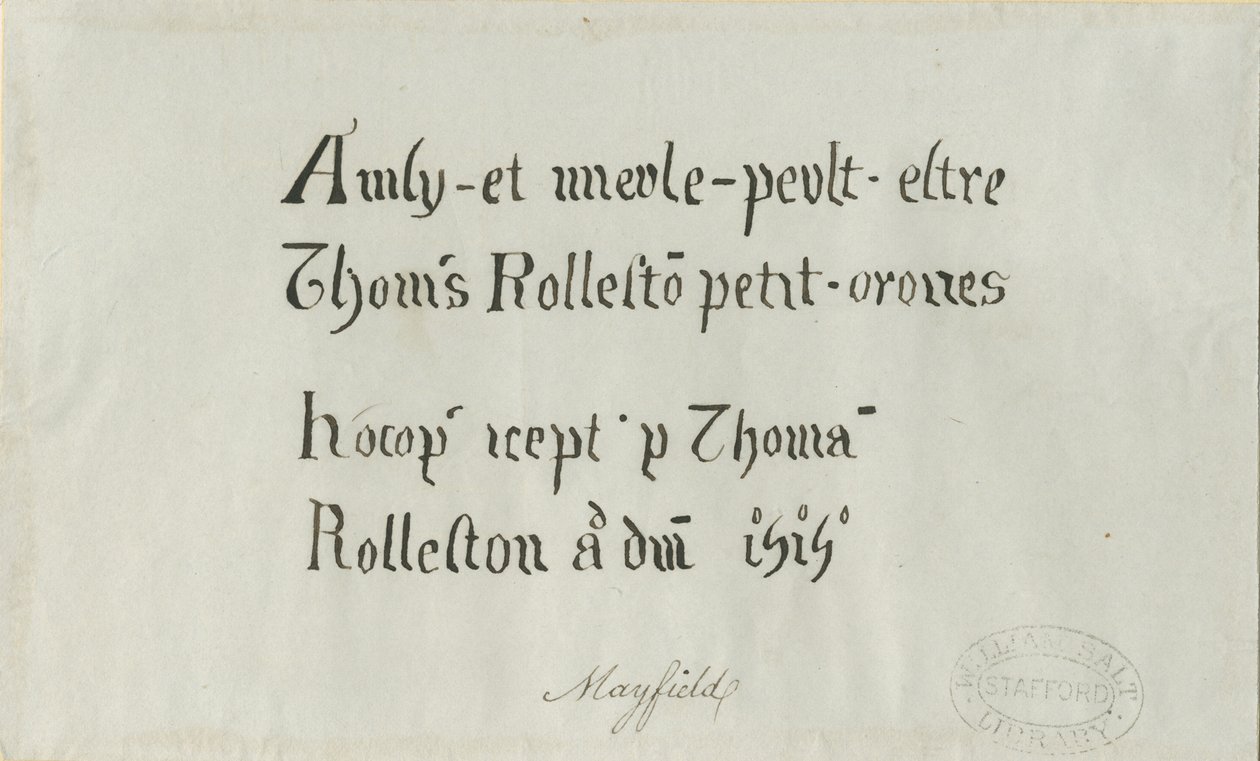 Ainsy - et mievls - pevlt · estre
Thom's Rollestō petit · orones
hoc op' icept · p Thomā
Rolleston aº dm̄ 1515
Mayfield
WILLIAM SALT
STAFFORD
LIBRARY